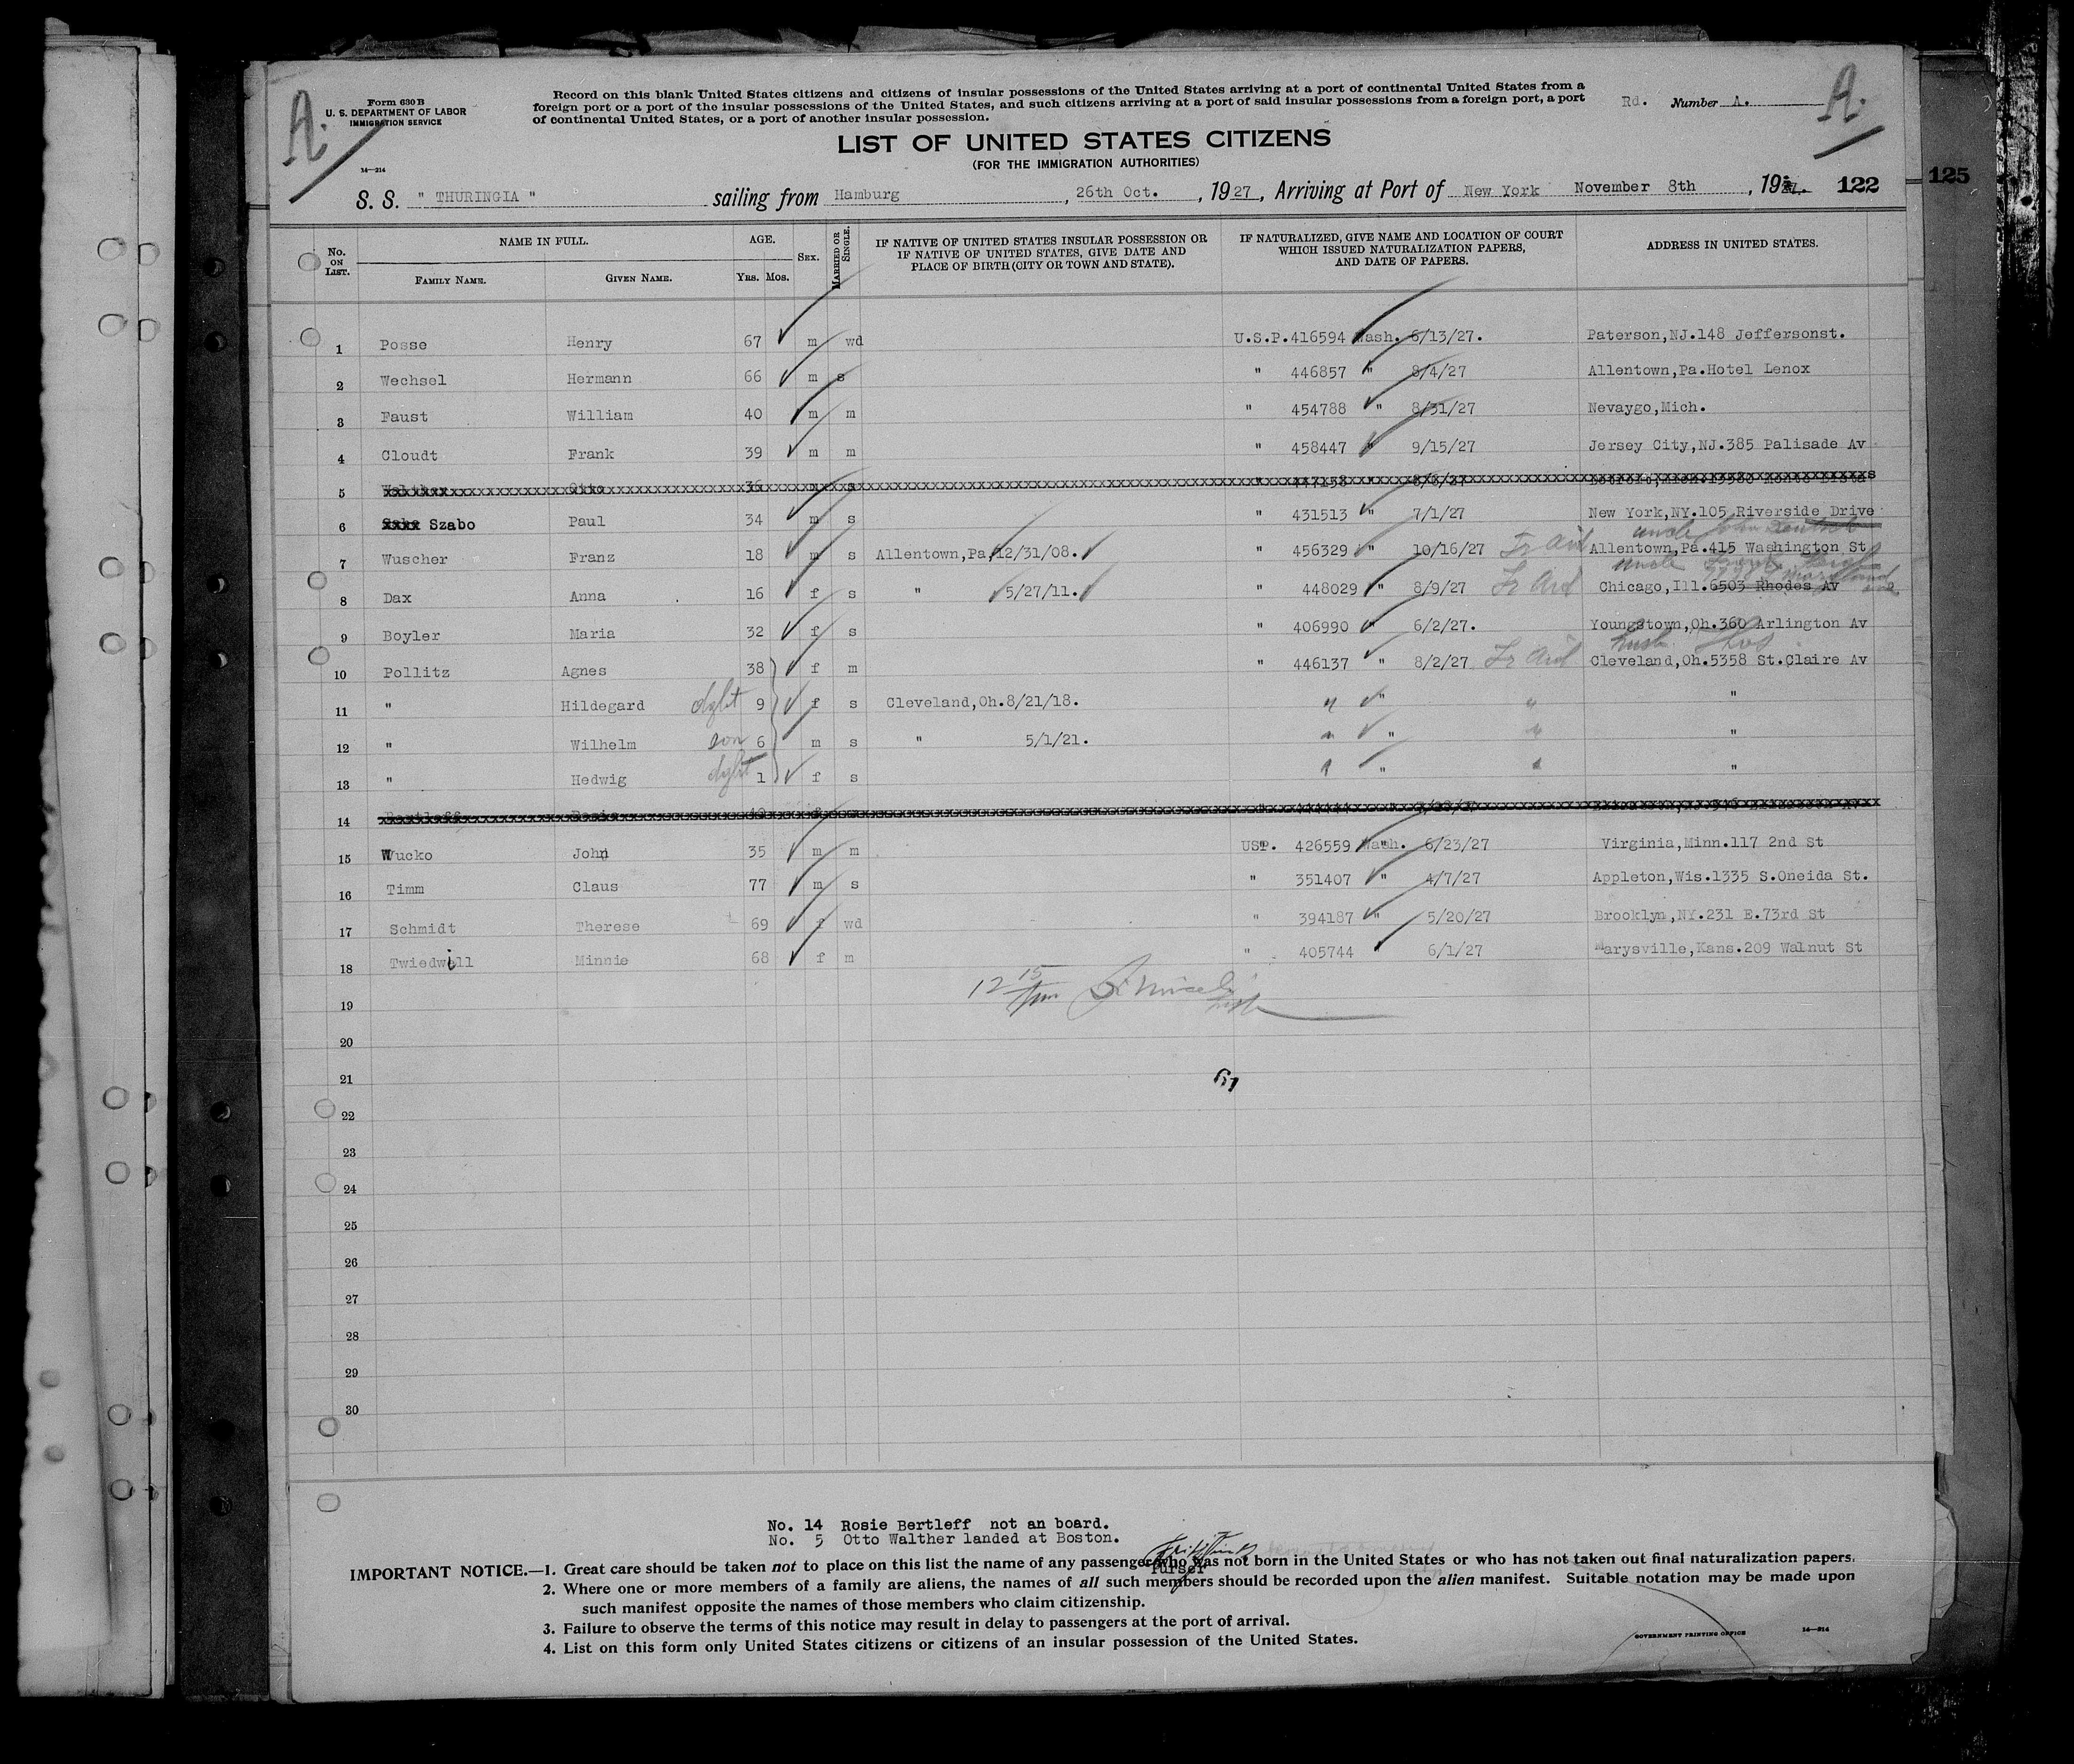 A.
Form 630 B
U. S. DEPARTMENT OF LABOR
IMMIGRATION SERVICE
14—214
Record on this blank United States citizens and citizens of insular possessions of the United States arriving at a port of continental United States from a
foreign port or a port of the insular possessions of the United States, and such citizens arriving at a port of said insular possessions from a foreign port, a port
of continental United States, or a port of another insular possession.
Rd. Number A.
A.
LIST OF UNITED STATES CITIZENS
(FOR THE IMMIGRATION AUTHORITIES)
S. S. " THURINGIA " sailing from Hamburg , 26th Oct. , 19 27, Arriving at Port of New York November 8th , 19 122
125
No. ON LIST. NAME IN FULL. FAMILY NAME. GIVEN NAME. AGE. YRS. MOS. SEX. MARRIED OR SINGLE.
IF NATIVE OF UNITED STATES INSULAR POSSESSION OR
IF NATIVE OF UNITED STATES, GIVE DATE AND
PLACE OF BIRTH (CITY OR TOWN AND STATE).
IF NATURALIZED, GIVE NAME AND LOCATION OF COURT
WHICH ISSUED NATURALIZATION PAPERS,
AND DATE OF PAPERS.
ADDRESS IN UNITED STATES.
1 Posse Henry 67 m wd U.S.P.416594 Wash. 6/13/27. Paterson,NJ.148 Jeffersonst.
2 Wechsel Hermann 66 m s " 446857 " 8/4/27 Allentown,Pa.Hotel Lenox
3 Faust William 40 m m " 454788 " 8/31/27 Nevaygo,Mich.
4 Cloudt Frank 39 m m " 458447 " 9/15/27 Jersey City,NJ.385 Palisade Av
5 Walther Otto 36 m s " 447158 " 8/6/27
6 Szabo Paul 34 m s " 431513 " 7/1/27 New York,NY.105 Riverside Drive
uncle John
7 Wuscher Franz 18 m s Allentown,Pa,12/31/08. " 456329 " 10/16/27 Allentown,Pa.415 Washington St
uncle
8 Dax Anna 16 f s " 5/27/11. " 448029 " 8/9/27 Chicago,Ill.6503 Rhodes Av
9 Boyler Maria 32 f s " 406990 " 6/2/27. Youngstown,Oh.360 Arlington Av
husb.
10 Pollitz Agnes 38 f m " 446137 " 8/2/27 Cleveland,Oh.5358 St.Claire Av
11 " Hildegard dght 9 f s Cleveland,Oh.8/21/18. " " " "
12 " Wilhelm son 6 m s " 5/1/21. " " " "
13 " Hedwig dght 1 f s " " " "
14 Bertleff Rosie
15 Wucko John 35 m m USP. 426559 Wash. 6/23/27 Virginia,Minn.117 2nd St
16 Timm Claus 77 m s " 351407 " 4/7/27 Appleton,Wis.1335 S.Oneida St.
17 Schmidt Therese 69 f wd " 394187 " 5/20/27 Brooklyn,NY.231 E.73rd St
18 Twiedwill Minnie 68 f m " 405744 6/1/27 Marysville,Kans.209 Walnut St
12 15
19
20
21
22
23
24
25
26
27
28
29
30
No. 14 Rosie Bertleff not an board.
No. 5 Otto Walther landed at Boston.
Purser
IMPORTANT NOTICE.—1. Great care should be taken not to place on this list the name of any passenger who was not born in the United States or who has not taken out final naturalization papers.
2. Where one or more members of a family are aliens, the names of all such members should be recorded upon the alien manifest. Suitable notation may be made upon
such manifest opposite the names of those members who claim citizenship.
3. Failure to observe the terms of this notice may result in delay to passengers at the port of arrival.
4. List on this form only United States citizens or citizens of an insular possession of the United States.
GOVERNMENT PRINTING OFFICE 14—214